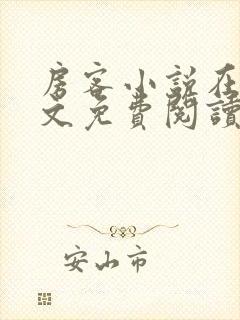 房客小说在
文免費閱讀
安山市